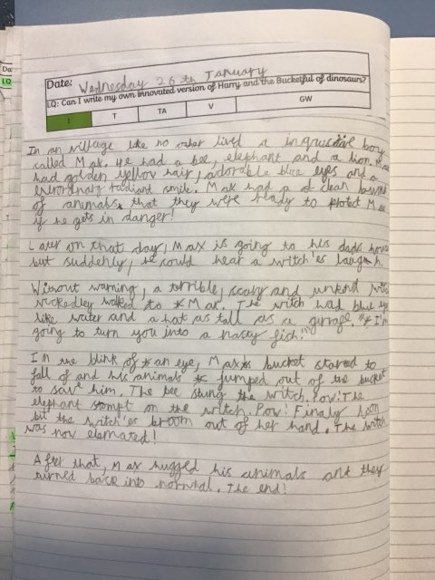 Date: Wednesday 26th January
LQ: Can I write my own innovated version of Harry and the Bucketful of dinosaurs?
I T TA V GW
In an village like no other lived a boy
called Max. He had a bee, elephant and a lion. Max
had golden yellow hair, adorable blue eyes and a
radiant smile. Max had a clean
of animals that they were ready to protect Max
if he gets in danger!
Later on that day, Max is going to his dads house
but suddenly, he could hear a witch'es laugh
Without warning, a terrible, scary and unkind witch
wickedley walked to Max. The witch had blue eyes
like water and a hat as tall as a giraffe. "I'm
going to turn you into a fish!"
In the blink of an eye, Max's bucket started to
fall of and his animals jumped out of the bucket
to save him. The bee stung the witch. Pow! The
elephant stompt on the witch. Pow! Finaly lion
bit the witch'es broom out of her hand. The witch
was now!
After that, Max hugged his animals and they
turned back into normal. The end!